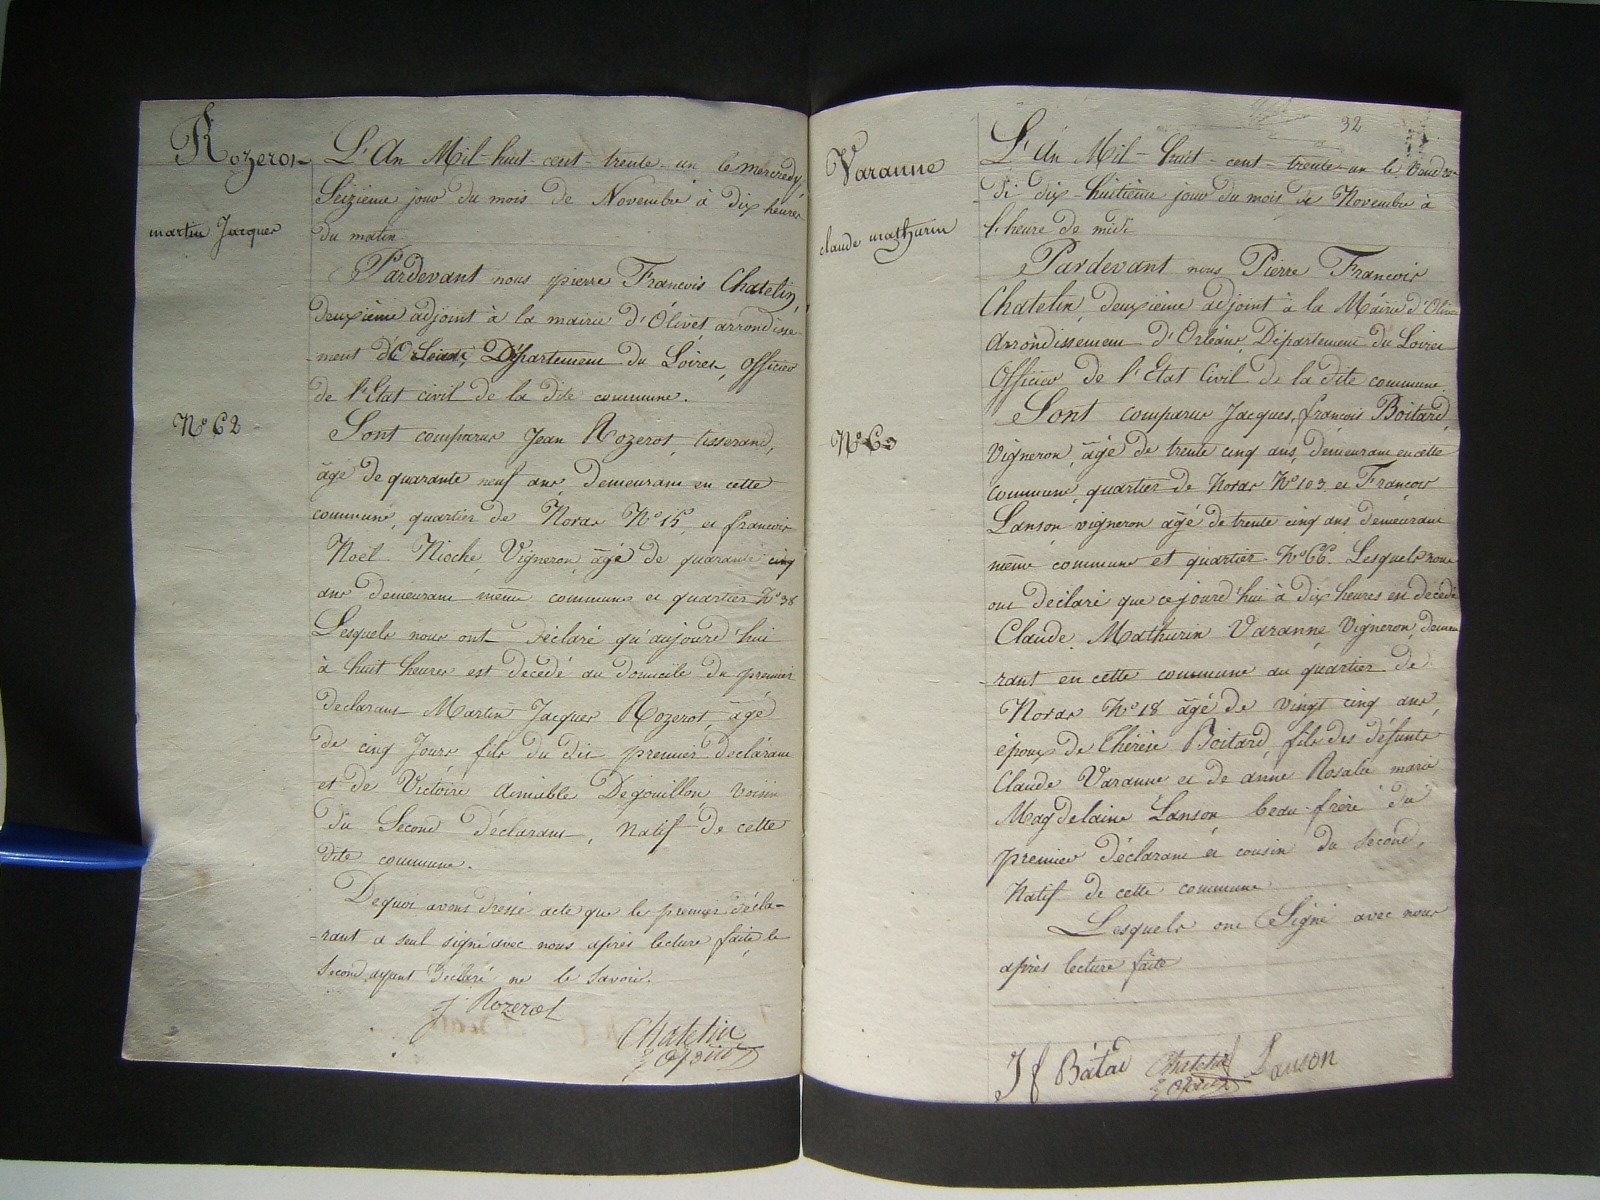 Rozerot
martin Jacques
N° 62
L'An Mil-huit-cent-trente-un le mercredy
Seizieme jour du mois de Novembre à dix heures
du matin
Pardevant nous pierre Francois Chatelin,
deuxième adjoint à la mairie d'Olivet arrondisse-
-ment d'Orléans, Département du Loiret, officier
de l'Etat civil de la dite commune.
Sont comparus Jean Rozerot, tisserand,
âgé de quarante neuf ans, demeurant en cette
commune, quartier de Noras N° 15, et francois
Noël Nioche, Vigneron, âgé de quarante cinq
ans demeurant meme commune et quartier N° 38
Lesquels nous ont déclaré qu'aujourd'hui
à huit heures est decedé au domicile du premier
declarant Martin Jacques Rozerot, âgé
de cinq Jours fils du dit premier déclarant
et de Victoire Aimable Degouillon, voisin
du Second déclarant, Natif de cette
dite commune.
Dequoi avons dressé acte que le premier décla-
-rant a seul signé avec nous après lecture faite, le
Second ayant déclaré ne le savoir.
J Rozerot
Chatelin
2 adjoint
32
Varanne
claude mathurin
N° 63
L'An Mil-huit-cent-trente-un le Vendre-
-di dix-huitième jour du mois de Novembre à
l'heure de midi
Pardevant nous Pierre Francois
Chatelin, deuxième adjoint à la Mairie d'Olivet
Arrondissement d'Orléans, Département du Loiret
Officier de l'Etat Civil de la dite commune.
Sont comparus Jacques, francois Boitard,
Vigneron, âgé de trente cinq ans, demeurant en cette
commune, quartier de Noras N° 103 et François
Lanson vigneron âgé de trente cinq ans demeurant
même commune et quartier N° 66. Lesquels nous
ont déclaré que cejourd'hui à dix heures est decedé
Claude Mathurin Varanne Vigneron, demeu-
-rant en cette commune au quartier de
Noras N° 18 âgé de vingt cinq ans,
époux de Thérèse Boitard, fils des défunts
Claude Varanne et de anne Rosalie marie
Magdelaine Lanson beau-frère du
premier déclarant et cousin du Second,
Natif de cette commune
Lesquels ont Signé avec nous
après lecture faite
J f Batar
Chatelin
2 adjoint
Lanson